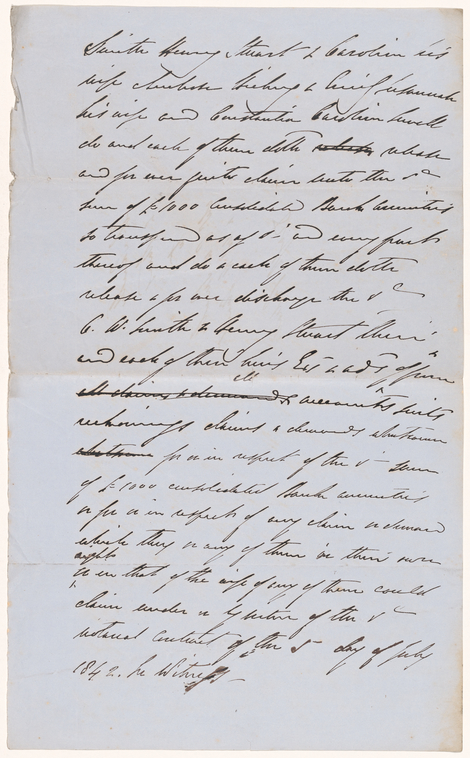 Smith Henry Stuart & Caroline his
wife Archibald & Susannah
his wife and Constantia Caroline Sewell
do and each of them doth release release
and for ever quite claim unto the sd
sum of £1000 Consolidated Bank annuities
so transferred as afsd and every part
thereof and do & each of them doth
release & for ever discharge the sd
C. W. Smith & Henry Stuart their
and each of their heirs Exs & ads of from
all
all claims & demands accounts suits
reckonings claims & demands whatsoever
whatsoever for or in respect of the sd sum
of £1000 consolidated Bank annuities
or for or in respect of any claim or demand
which they or any of them in their own
right
or in that of the wife of any of them could
claim under or by virtue of the sd
notarial contract of the 5 day of July
1842. In Witness